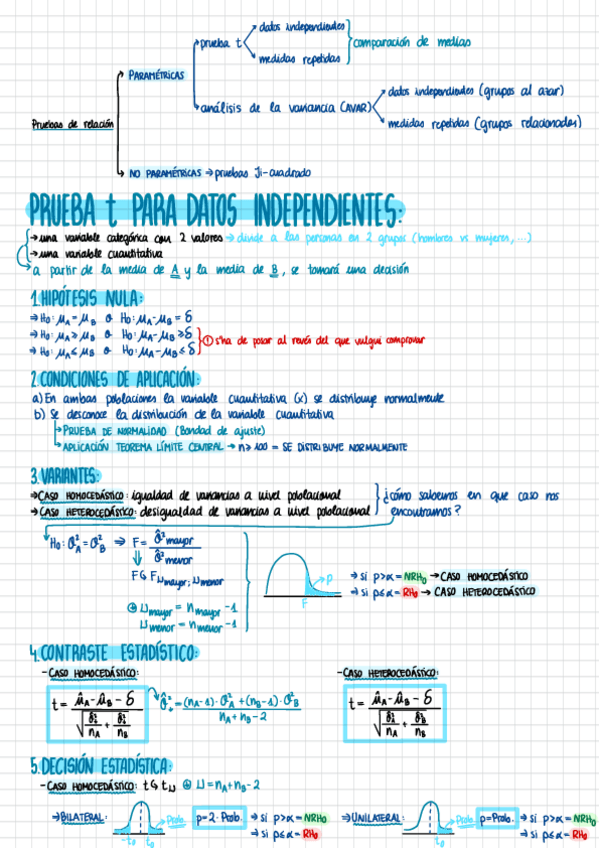 Pruebas de relación
PARAMÉTRICAS
prueba t
datos independientes
medidas repetidas
comparación de medias
análisis de la variancia (AVAR)
datos independientes (grupos al azar)
medidas repetidas (grupos relacionados)
NO PARAMÉTRICAS → pruebas Ji-cuadrado
PRUEBA t PARA DATOS INDEPENDIENTES:
→ una variable categórica con 2 valores → divide a las personas en 2 grupos (hombres vs mujeres, ...)
→ una variable cuantitativa
a partir de la media de A y la media de B, se tomará una decisión
1. HIPÓTESIS NULA:
⇒ H₀: μA = μB o H₀: μA - μB = δ
⇒ H₀: μA ≥ μB o H₀: μA - μB ≥ δ
⇒ H₀: μA ≤ μB o H₀: μA - μB ≤ δ
! s'ha de posar al revés del que vulgui comprovar
2. CONDICIONES DE APLICACIÓN:
a) En ambas poblaciones la variable cuantitativa (x) se distribuye normalmente
b) Se desconoce la distribución de la variable cuantitativa
→ PRUEBA DE NORMALIDAD (Bondad de ajuste)
→ APLICACIÓN TEOREMA LÍMITE CENTRAL → n ≥ 100 = SE DISTRIBUYE NORMALMENTE
3. VARIANTES:
⇒ CASO HOMOCEDÁSTICO: igualdad de variancias a nivel poblacional
⇒ CASO HETEROCEDÁSTICO: desigualdad de variancias a nivel poblacional
¿cómo sabemos en que caso nos
encontramos?
H₀: σ²A = σ²B ⇒ F = σ̂² mayor / σ̂² menor
F ~ F υmayor; υmenor
υmayor = nmayor - 1
υmenor = nmenor - 1
p
F
⇒ si p > α = NRH₀ → CASO HOMOCEDÁSTICO
⇒ si p ≤ α = RH₀ → CASO HETEROCEDÁSTICO
4. CONTRASTE ESTADÍSTICO:
- CASO HOMOCEDÁSTICO:
t = (μ̂A - μ̂B - δ) / √(σ̂²/nA + σ̂²/nB)
σ̂² = ((nA - 1) · σ̂²A + (nB - 1) · σ̂²B) / (nA + nB - 2)
- CASO HETEROCEDÁSTICO:
t = (μ̂A - μ̂B - δ) / √(σ̂²A/nA + σ̂²B/nB)
5. DECISIÓN ESTADÍSTICA:
- CASO HOMOCEDÁSTICO: t ~ tυ υ = nA + nB - 2
⇒ BILATERAL:
-t₀ t₀
Prob.
p = 2 · Prob.
⇒ si p > α = NRH₀
⇒ si p ≤ α = RH₀
⇒ UNILATERAL:
t₀
Prob.
p = Prob.
⇒ si p > α = NRH₀
⇒ si p ≤ α = RH₀